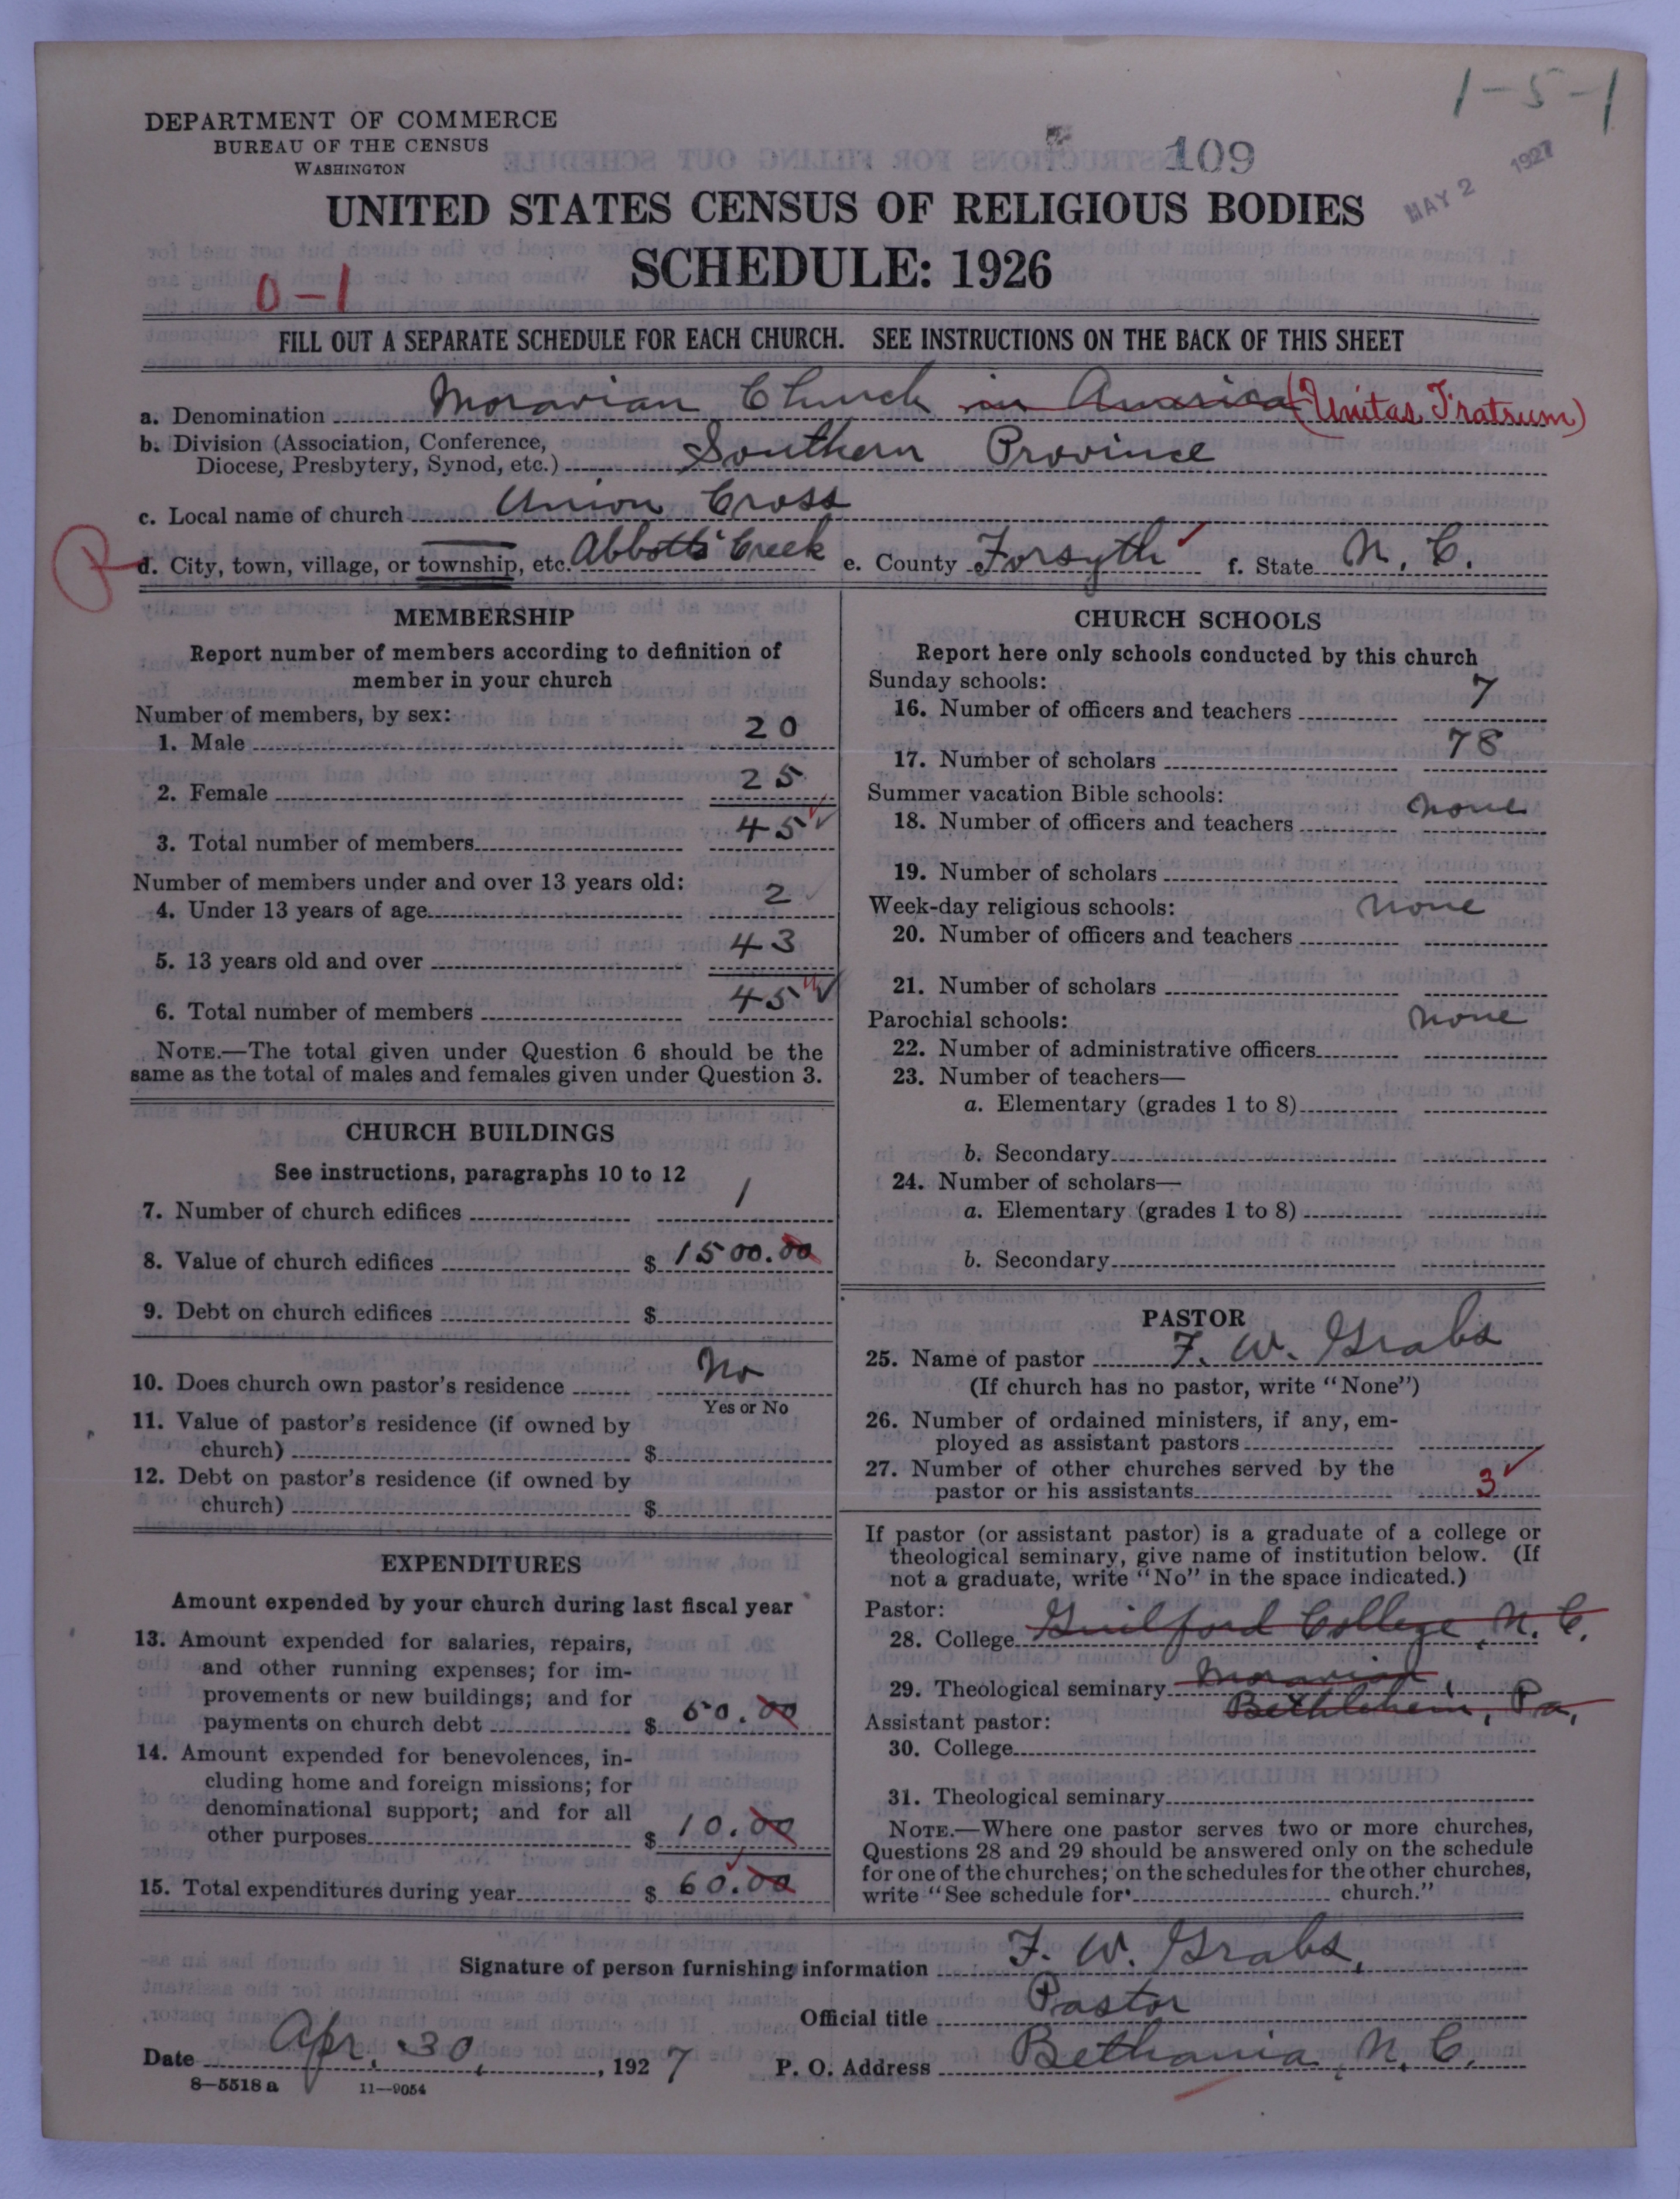 1-5-1
DEPARTMENT OF COMMERCE
BUREAU OF THE CENSUS
WASHINGTON
109
MAY 2 1927
UNITED STATES CENSUS OF RELIGIOUS BODIES
SCHEDULE: 1926
0-1
FILL OUT A SEPARATE SCHEDULE FOR EACH CHURCH. SEE INSTRUCTIONS ON THE BACK OF THIS SHEET
a. Denomination Moravian Church in America (Unitas Fratrum)
b. Division (Association, Conference,
Diocese, Presbytery, Synod, etc.) Southern Province
c. Local name of church Union Cross
R
d. City, town, village, or township, etc. Abbotts Creek e. County Forsyth f. State N. C.
MEMBERSHIP
Report number of members according to definition of
member in your church
Number of members, by sex:
1. Male 20
2. Female 25
3. Total number of members 45
Number of members under and over 13 years old:
4. Under 13 years of age 2
5. 13 years old and over 43
6. Total number of members 45
NOTE.—The total given under Question 6 should be the
same as the total of males and females given under Question 3.
CHURCH BUILDINGS
See instructions, paragraphs 10 to 12
7. Number of church edifices 1
8. Value of church edifices $ 1500.00
9. Debt on church edifices $
10. Does church own pastor's residence No
Yes or No
11. Value of pastor's residence (if owned by
church) $
12. Debt on pastor's residence (if owned by
church) $
EXPENDITURES
Amount expended by your church during last fiscal year
13. Amount expended for salaries, repairs,
and other running expenses; for im-
provements or new buildings; and for
payments on church debt $ 50.00
14. Amount expended for benevolences, in-
cluding home and foreign missions; for
denominational support; and for all
other purposes $ 10.00
15. Total expenditures during year $ 60.00
CHURCH SCHOOLS
Report here only schools conducted by this church
Sunday schools:
16. Number of officers and teachers 7
17. Number of scholars 78
Summer vacation Bible schools:
18. Number of officers and teachers none
19. Number of scholars
Week-day religious schools:
20. Number of officers and teachers none
21. Number of scholars
Parochial schools:
22. Number of administrative officers none
23. Number of teachers—
a. Elementary (grades 1 to 8)
b. Secondary
24. Number of scholars—
a. Elementary (grades 1 to 8)
b. Secondary
PASTOR
25. Name of pastor F. W. Grabs
(If church has no pastor, write "None")
26. Number of ordained ministers, if any, em-
ployed as assistant pastors
27. Number of other churches served by the
pastor or his assistants 3
If pastor (or assistant pastor) is a graduate of a college or
theological seminary, give name of institution below. (If
not a graduate, write "No" in the space indicated.)
Pastor:
28. College Guilford College, N. C.
29. Theological seminary Moravian,
Bethlehem, Pa.
Assistant pastor:
30. College
31. Theological seminary
NOTE.—Where one pastor serves two or more churches,
Questions 28 and 29 should be answered only on the schedule
for one of the churches; on the schedules for the other churches,
write "See schedule for church."
Signature of person furnishing information F. W. Grabs,
Official title Pastor
Date Apr. 30, 1927 P. O. Address Bethania, N. C.
8—5518a 11—9054